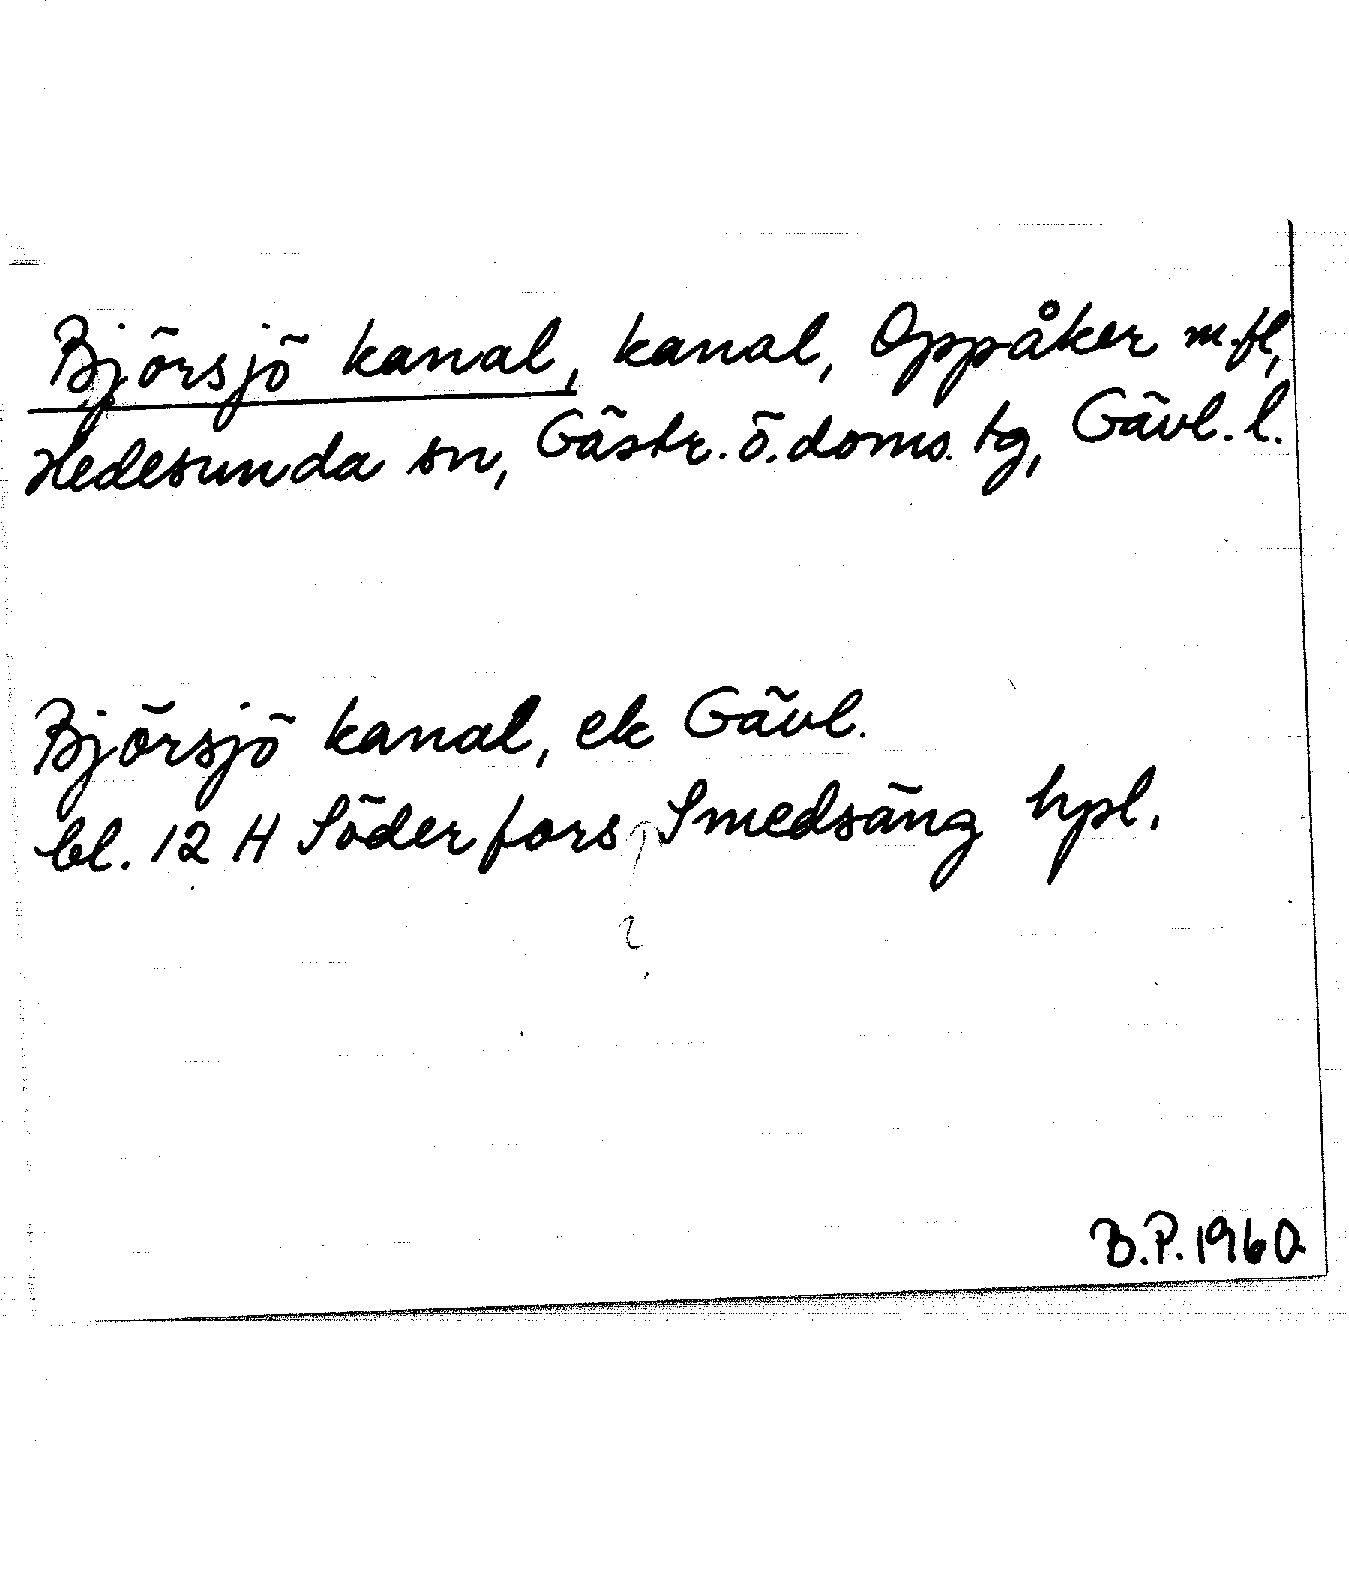 Björsjö kanal, kanal, Oppåker m.fl,
Hedesunda sn, Gästr. ö. doms. tg, Gävl. l.
Björsjö kanal, ek Gävl.
bl. 12 H Söderfors Smedsäng hpl.
?
B.P. 1960